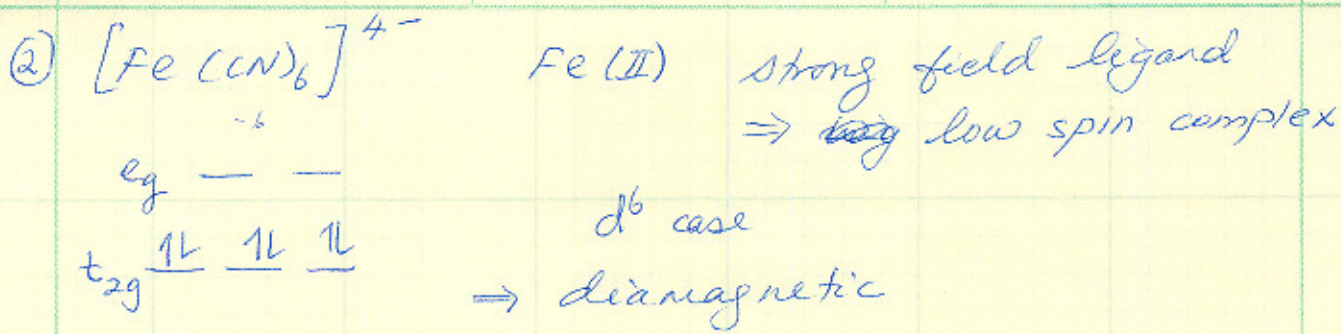 ② [Fe(CN)₆]⁴⁻ Fe(II) strong field ligand
-6 ⇒ low spin complex
eg — —
d⁶ case
t₂g ⥮ ⥮ ⥮
⇒ diamagnetic